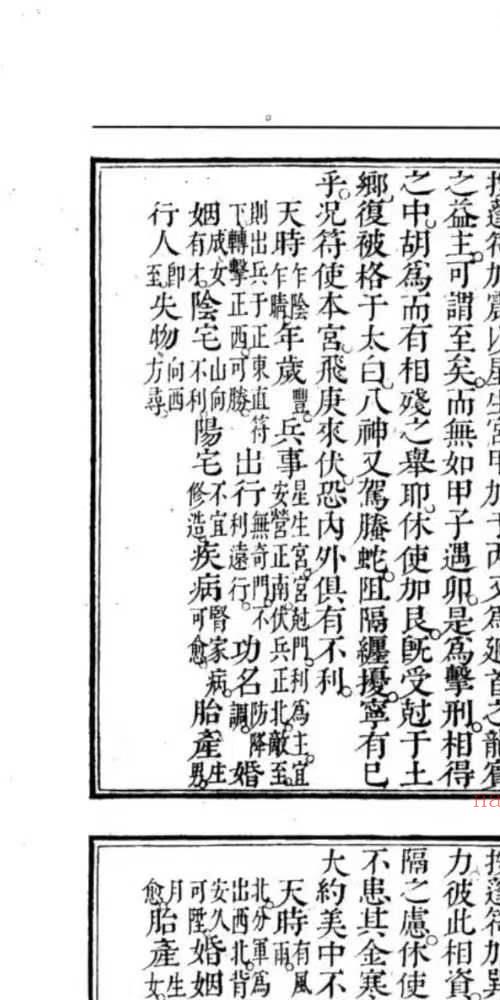 之益主可謂至矣而無如甲子遇卯是爲擊刑相得
之中胡爲而有相殘之舉耶休使加艮旣受尅于土
鄉復被格于太白八神又駕螣蛇阻隔纒擾寧有已
乎况符使本宮飛庚來伏恐內外俱有不利
天時乍陰乍晴年歲豐兵事星生宮宮尅門利爲主宜安營正南伏兵正北敵至
則出兵于正東直符下轉擊正西可勝出行無奇門不利遠行功名防降調婚
姻成女姻有才陰宅山向不利陽宅不宜修造疾病腎家病可愈胎產生男
行人卽至失物向西方尋
力彼此相資
隔之慮休使
不患其金寒
大約美中不
天時有風雨
北分軍爲
出西北背
安久可陞婚姻
月愈胎產生女